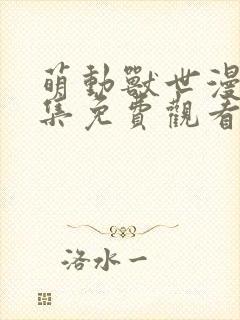 萌動獸世漫
集免費觀看
洛水一